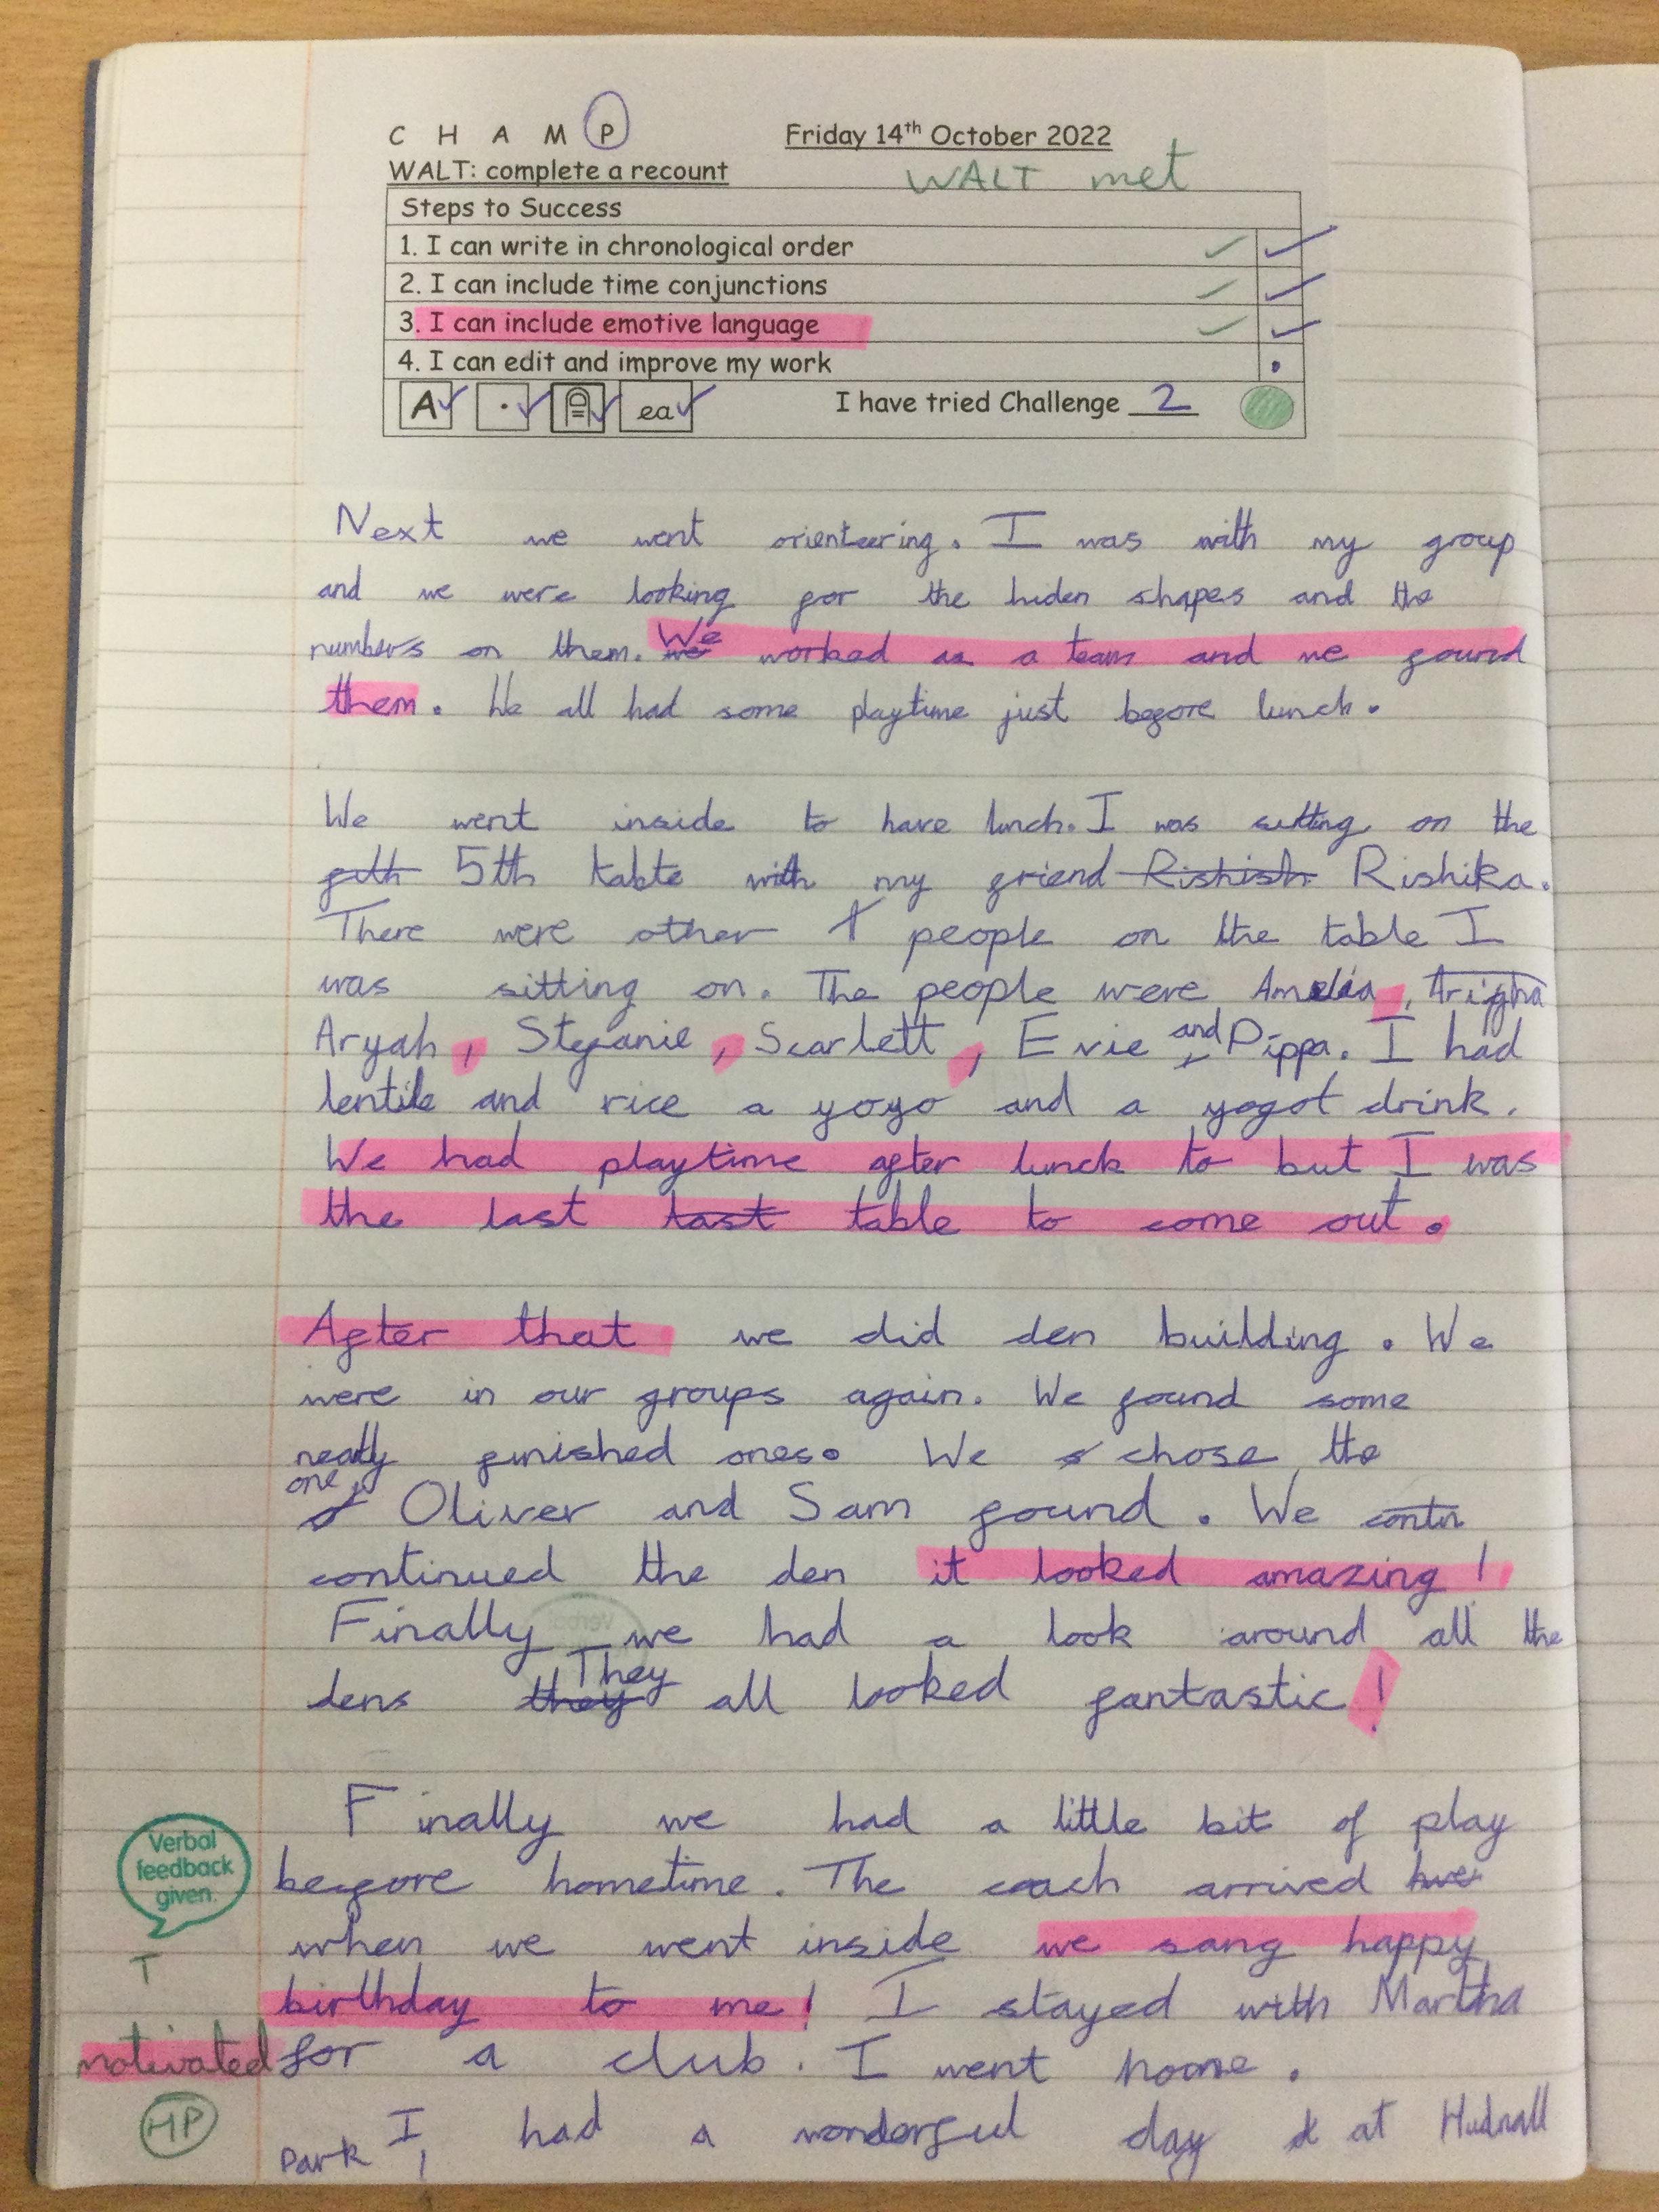 C H A M P Friday 14th October 2022
WALT: complete a recount WALT met
Steps to Success
1. I can write in chronological order
2. I can include time conjunctions
3. I can include emotive language
4. I can edit and improve my work
A . ea I have tried Challenge 2
Next we went orienteering. I was with my group
and we were looking for the hiden shapes and the
numbers on them. We worked as a team and we found
them. We all had some playtime just before lunch.
We went inside to have lunch. I was sitting on the
5th table with my friend Rishika.
There were other people on the table I
was sitting on. The people were Amelia,
Aryah, Stefanie, Scarlett, Evie and Pippa. I had
lentils and rice a yoyo and a yogot drink.
We had playtime after lunch to but I was
the last table to come out.
After that we did den building. We
were in our groups again. We found some
neatly finished ones. We chose the
one Oliver and Sam found. We
continued the den it looked amazing!
Finally we had a look around all the
dens They all looked fantastic!
Finally we had a little bit of play
before hometime. The coach arrived
when we went inside we sang happy
birthday to me! I stayed with Martha
for a club. I went home.
I had a wonderful day at Hudnall
Park
Verbal
feedback
given
T
motivated
HP